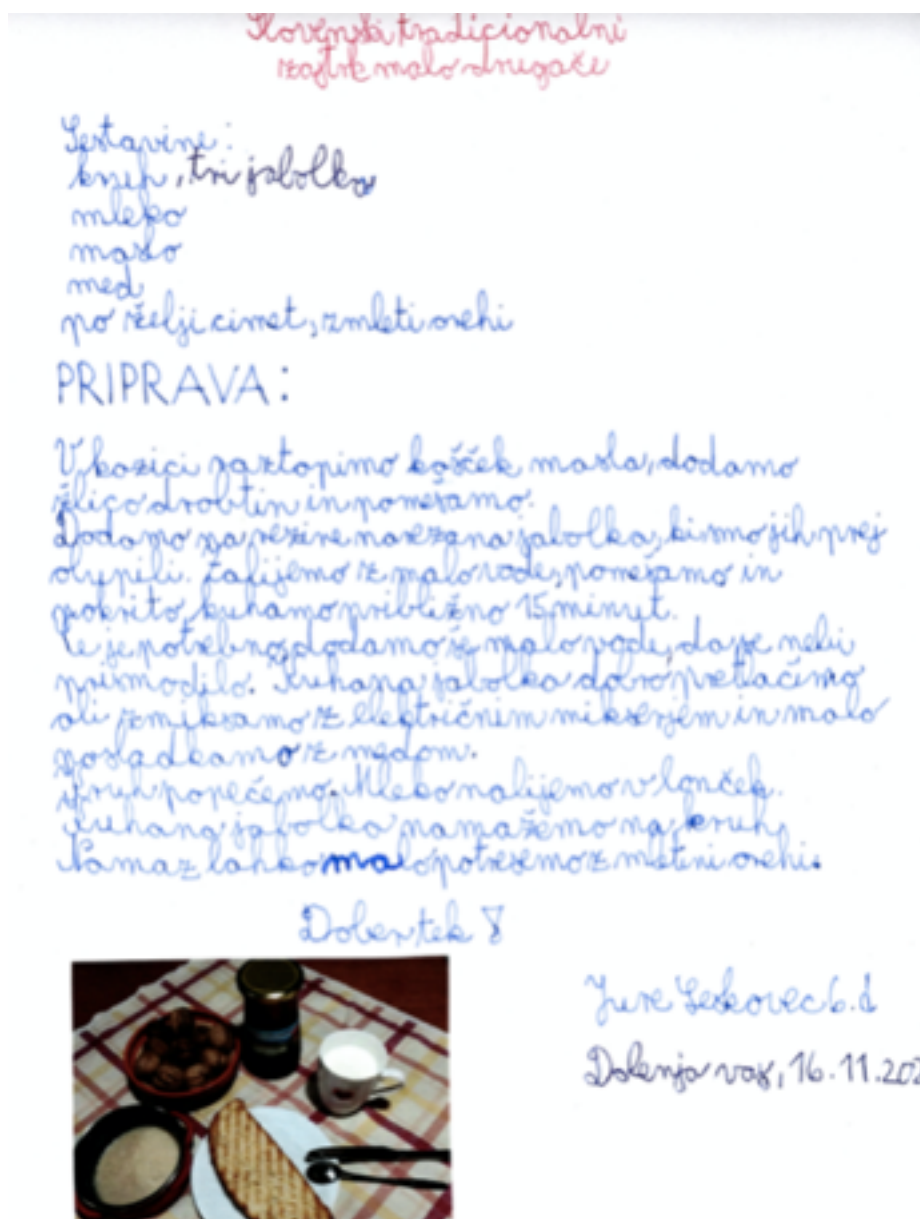 Slovenski tradicionalni
zajtrk malo drugače
Sestavine:
kruh, tri jabolka
mleko
maslo
med
po želji cimet, zmleti orehi
PRIPRAVA:
V kozici raztopimo košček masla, dodamo
žlico drobtin in pomešamo.
Dodamo na rezine narezana jabolka, ki smo jih prej
olupili. Zalijemo z malo vode, pomešamo in
pokrito kuhamo približno 15 minut.
Če je potrebno, dodamo še malo vode, da se nebi
prismodilo. Kuhana jabolka dobro pretlačimo
ali zmiksamo z električnim mikserjem in malo
posladkamo z medom.
Kruh popečemo. Mleko nalijemo v lonček.
Kuhana jabolka namažemo na kruh.
Namaz lahko malo potresemo z mletimi orehi.
Dober tek
Jure Leskovec 6. d
Dolenja vas, 16.11.202